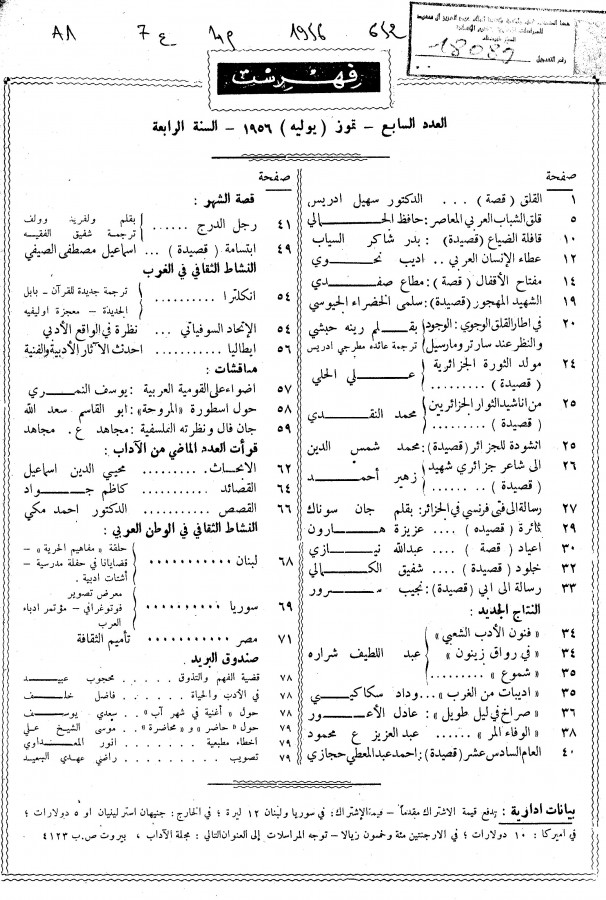 ٨٨ ٧ ع ٤م ١٩٥٦ ٦٨٢
رقم التسجيل
18087
فهرست
العدد السابع - تموز ( يوليه ) ١٩٥٦ - السنة الرابعة
صفحة
١ القلق ( قصة ) . . . الدكتور سهيل ادريس
٥ قلق الشباب العربي المعاصر : حافظ الجمالي
١٠ قافلة الضياع ( قصيدة ) : بدر شاكر السياب
١٢ عطاء الإنسان العربي .. اديب نحوي
١٤ مفتاح الأقفال ( قصة ) : مطاع صفدي
١٩ الشهيد المهجور ( قصيدة ) : سلمى الخضراء الجيوسي
٢٠ في اطار القلق الوجودي : الوجود والنظر عند سارتر ومارسيل { بقلم رينه حبشي ترجمة عائده مطرجي ادريس
٢٤ مولد الثورة الجزائرية ( قصيدة ) . . . . . . { علي الحلي
٢٥ من اناشيد الثوار الجزائريين ( قصيدة ) . . . . . . { محمد النقدي
٢٥ انشودة للجزائر ( قصيدة ) : محمد شمس الدين
٢٦ الى شاعر جزائري شهيد ( قصيدة ) . . . . . . { زهير أحمد
٢٧ رسالة الى فتى فرنسي في الجزائر : بقلم جان سوناك
٢٩ ثائرة ( قصيده ) ... عزيزة هارون
٣٠ اعياد ( قصة ) .... عبدالله نيازي
٣٢ خلود ( قصيدة ) .... شفيق الكمالي
٣٣ رسالة الى ابي ( قصيدة ) : نجيب سرور
النتاج الجديد :
٣٤ « فنون الأدب الشعبي »
٣٤ « في رواق زينون » { عبد اللطيف شراره
٣٥ « شموع » . . . . . .
٣٥ « اديبات من الغرب » ... وداد سكاكيني
٣٦ « صراخ في ليل طويل » : عادل الأعور
٣٨ « الوفاء المر » ..... عبد العزيز ع محمود
٤٠ العام السادس عشر ( قصيدة ) : احمد عبد المعطي حجازي
صفحة
قصة الشهر :
٤١ رجل الدرج . . . . { بقلم ولفريد وولف ترجمة شفيق الفقيه
٤٩ ابتسامة ( قصيدة ) ... اسماعيل مصطفى الصيفي
النشاط الثقافي في الغرب
٥٤ انكلترا . . . . . . . . . { ترجمة جديدة للقرآن - بابل الجديدة - معجزة اوليفيه
٥٤ الإتحاد السوفياتي ... نظرة في الواقع الأدبي
٥٦ ايطاليا . . . . . . . . . احدث الآثار الأدبية والفنية
مناقشات :
٥٧ اضواء على القومية العربية : يوسف النمري
٥٨ حول اسطورة « المروحة » : ابو القاسم سعد الله
٥٩ جان فال ونظرته الفلسفية : مجاهد ع. مجاهد
قرأت العدد الماضي من الآداب :
٦٢ الابحاث . . . . . . . . . محيي الدين اسماعيل
٦٤ القصائد . . . . . . . . . كاظم جواد
٦٦ القصص . . . . . . . الدكتور احمد مكي
النشاط الثقافي في الوطن العربي :
٦٨ لبنان . . . . . . . . . . . { حلقة « مفاهيم الحرية » - قضايانا في حفلة مدرسية - أشتات ادبية .
٦٩ سوريا . . . . . . . . . . . { معرض تصوير فوتوغرافي - مؤتمر ادباء العرب
٧١ مصر . . . . . . . . . . . تأميم الثقافة
صندوق البريد
٧٨ قضية الفهم والتذوق . . . . . محجوب عبيد
٧٨ في الأدب والحياة . . . . . . فاضل خلف
٧٨ حول « أغنية في شهر آب » ... سعدي يوسف
٧٩ حول « حاضر » و « محاضرة » . موسى الشيخ علي
٧٩ اخطاء مطبعية . . . . . . . انور المعداوي
٧٩ تصويب . . . . . . . . راضي مهدي السعيد
بيانات ادارية : تدفع قيمة الاشتراك مقدماً - قيمة الإشتراك : في سوريا ولبنان ١٢ ليرة ؛ في الخارج : جنيهان استرلينيان او ٥ دولارات ؛
في اميركا : ١٠ دولارات ؛ في الارجنتين مئة وخمسون ريالا - توجه المراسلات إلى العنوان التالي : مجلة الآداب ، بيروت ص.ب ٤١٢٣